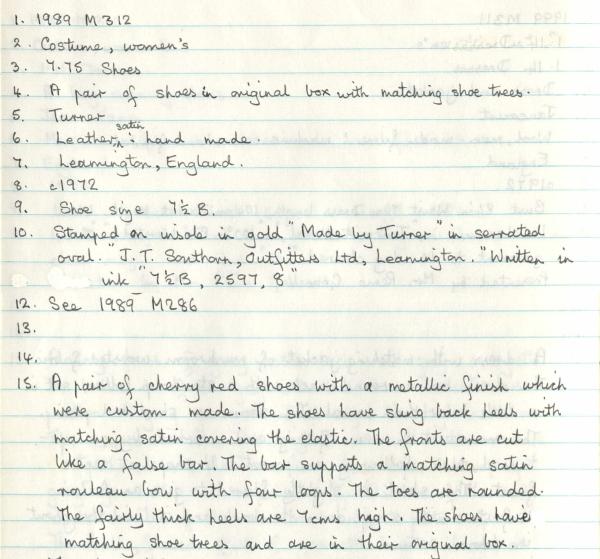 1. 1989 M312
2. Costume, women's
3. 7.75 Shoes
4. A pair of shoes in original box with matching shoe trees.
5. Turner
6. Leather, satin: hand made.
7. Leamington, England.
8. c1972
9. Shoe size 7½ B.
10. Stamped on insole in gold "Made by Turner" in serrated
oval. "J.T. Southorn, Outfitters Ltd, Leamington. "Written in
ink "7½B, 2597, 8"
12. See 1989 M286
13.
14.
15. A pair of cherry red shoes with a metallic finish which
were custom made. The shoes have sling back heels with
matching satin covering the elastic. The fronts are cut
like a false bar. The bar supports a matching satin
rouleau bow with four loops. The toes are rounded.
The fairly thick heels are 7cms high. The shoes have
matching shoe trees and are in their original box.